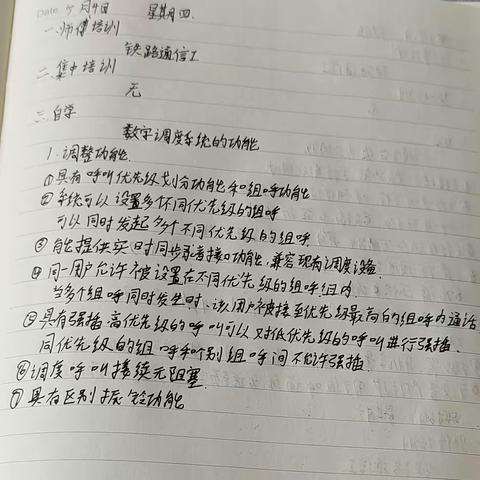 Date 5月9日 星期四.
一.师傅培训
铁路通信工
二.集中培训
无
三.自学
数字调度系统的功能
1.调整功能.
①具有呼叫优先级划分功能和组呼功能
②系统可以设置多个不同优先级的组呼
可以同时发起多个不同优先级的组呼
③能提供实时同步录音接口功能,兼容现有调度设备.
④同一用户允许被设置在不同优先级的组呼组内
当多个组呼同时发生时、该用户被接至优先级最高的组呼内通话
⑤具有强插.高优先级的呼叫可以对低优先级的呼叫进行强插.
同优先级的组呼和个别组呼间不允许强插.
⑥调度呼叫接续无阻塞.
⑦具有区别振铃功能